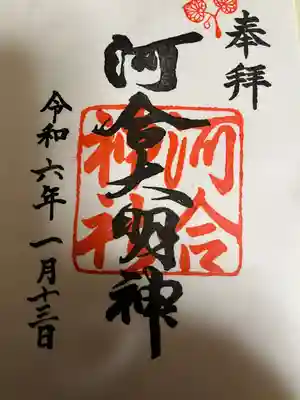 奉拝
河合大明神
河合
神社
令和六年一月十三日